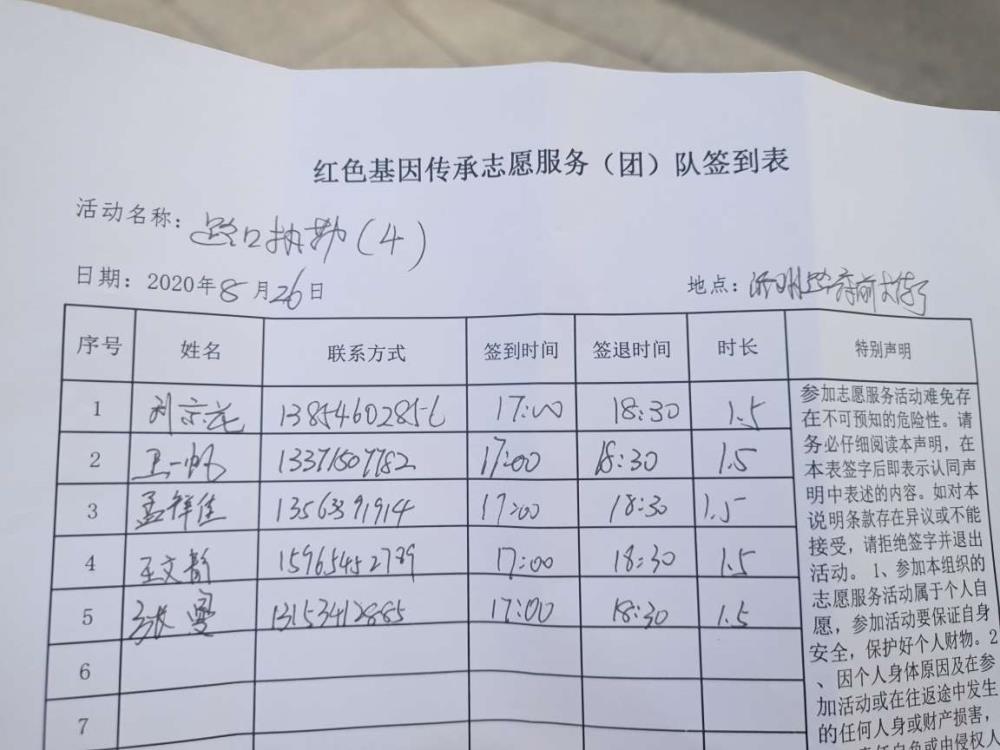 红色基因传承志愿服务（团）队签到表
活动名称：路口执勤（4）
日期：2020年8月26日
地点：府前大街
序号 姓名 联系方式 签到时间 签退时间 时长 特别声明
1 13854602856 17:00 18:30 1.5
2 王一帆 13371507782 17:00 18:30 1.5
3 孟祥佳 1356391914 17:00 18:30 1.5
4 王文韵 15965452789 17:00 18:30 1.5
5 张曼 13153412885 17:00 18:30 1.5
6
7
参加志愿服务活动难免存
在不可预知的危险性。请
务必仔细阅读本声明，在
本表签字后即表示认同声
明中表述的内容。如对本
说明条款存在异议或不能
接受，请拒绝签字并退出
活动。 1、参加本组织的
志愿服务活动属于个人自
愿，参加活动要保证自身
安全，保护好个人财物。2
、因个人身体原因及在参
加活动或在往返途中发生
的任何人身或财产损害，
责任自负或由侵权人